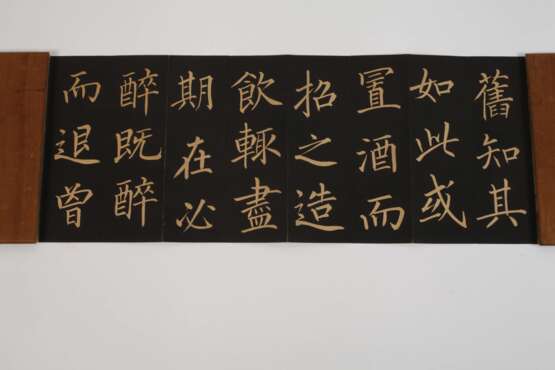 舊知其
如此或
置酒而
招之造
飲輒盡
期在必
醉既醉
而退曾